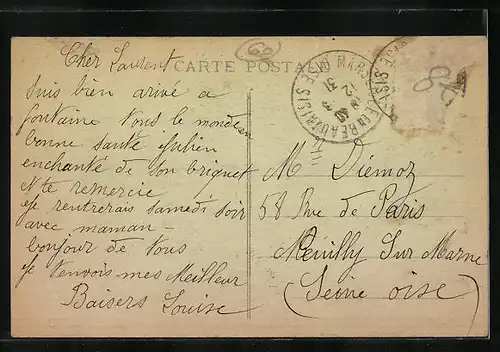 60
CARTE POSTALE
86
Cher Laurent
suis bien arivé a
fontaine tous le monde en
bonne santé Julien
enchanté de son briquet
et te remercie
je rentrerais samedi soir
avec maman -
bonjour de tous
je t'envois mes Meilleur
Baisers Louise
M Diémoz
58 Rue de Paris
Neuilly Sur Marne
(Seine oise)